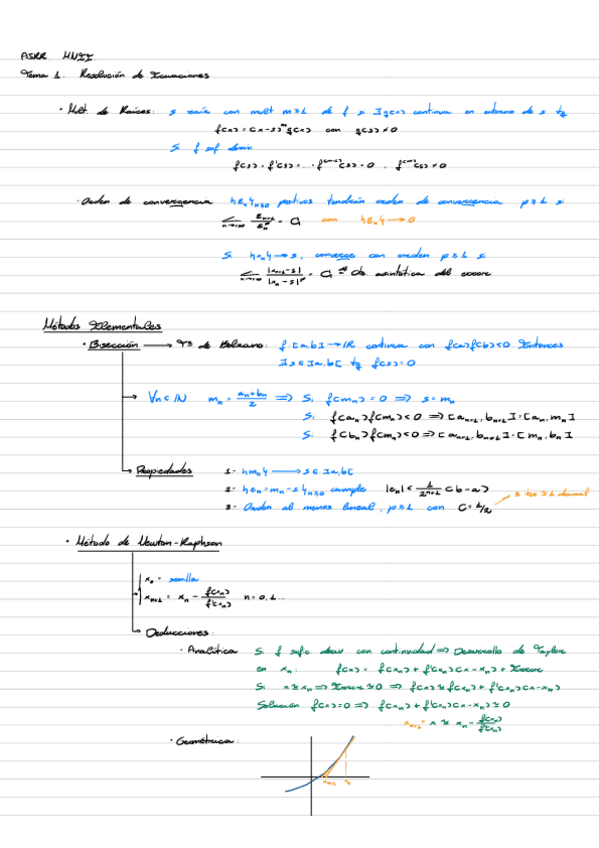 MNII
Tema 1. Resolución de Ecuaciones
· Mult de Raíces: s raíz con mult m≥1 de f si ∃g(x) continua en entorno de s tq
f(x) = (x-s)^m g(x) con g(s) ≠ 0
Si f suf deriv
f(s) = f'(s) = ... f^(m-1)(s) = 0 , f^(m)(s) ≠ 0
· Orden de convergencia {ε_n}_{n≥0} positivos tendrán orden de convergencia p≥1 si
lim_{n→∞} ε_{n+1}/ε_n^p = C, con {ε_n} → 0
Si {x_n} → s, converge con orden p≥1 si
lim_{n→∞} |x_{n+1}-s|/|x_n-s|^p = C cte asintótica del error
Métodos Elementales
· Bisección → T⁰ de Bolzano: f:[a,b]→ℝ continua con f(a)f(b)<0. Entonces
∃ s∈]a,b[ tq f(s)=0
→ ∀n∈ℕ m_n = (a_n+b_n)/2 ⇒ Si f(m_n) = 0 ⇒ s = m_n
Si f(a_n)f(m_n)<0 ⇒ [a_{n+1}, b_{n+1}] = [a_n, m_n]
Si f(b_n)f(m_n)<0 ⇒ [a_{n+1}, b_{n+1}] = [m_n, b_n]
→ Propiedades 1- {m_n} → s∈]a,b[
2- {e_n = m_n - s}_{n≥0} cumple |e_n| < 1/2^{n+1} (b-a)
3- Orden al menos lineal, p≥1 con C = 1/2
· Método de Newton-Raphson
x_0 = semilla
x_{n+1} = x_n - f(x_n)/f'(x_n) n = 0,1...
→ Deducciones:
· Analítica Si f sufc. deriv con continuidad ⇒ Desarrollo de Taylor
en x_n: f(x) = f(x_n) + f'(x_n)(x-x_n) + Error
Si x≈x_n ⇒ Error≈0 ⇒ f(x)≈f(x_n) + f'(x_n)(x-x_n)
Solución f(x)=0 ⇒ f(x_n) + f'(x_n)(x-x_n) ≈ 0
x_{n+1} = x ≈ x_n - f(x_n)/f'(x_n)
· Geométrica:
x_{n+1} x_n